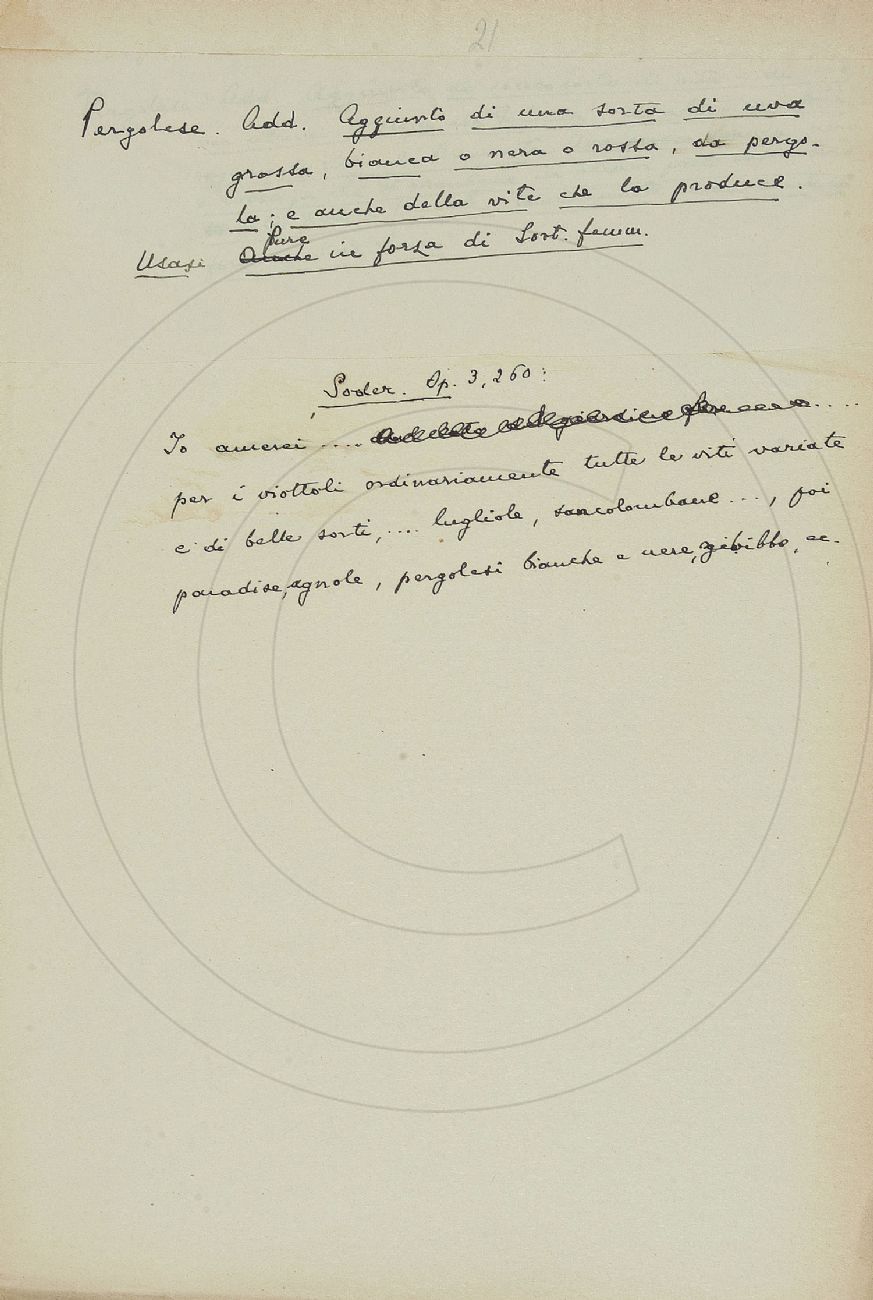 21
Pergolese. Add. Aggiunto di una sorta di uva
grossa, bianca o nera o rossa, da pergo-
la; e anche della vite che la produce.
Pure
Usasi Anche in forza di Sost. femm.
Soder. Op. 3, 260:
Io amerei .... ....
per i viottoli ordinariamente tutte le viti variate
e di belle sorti, ... lugliole, sancolombane ..., poi
paradise, agnole, pergolesi bianche e nere, zibibbo, ec.